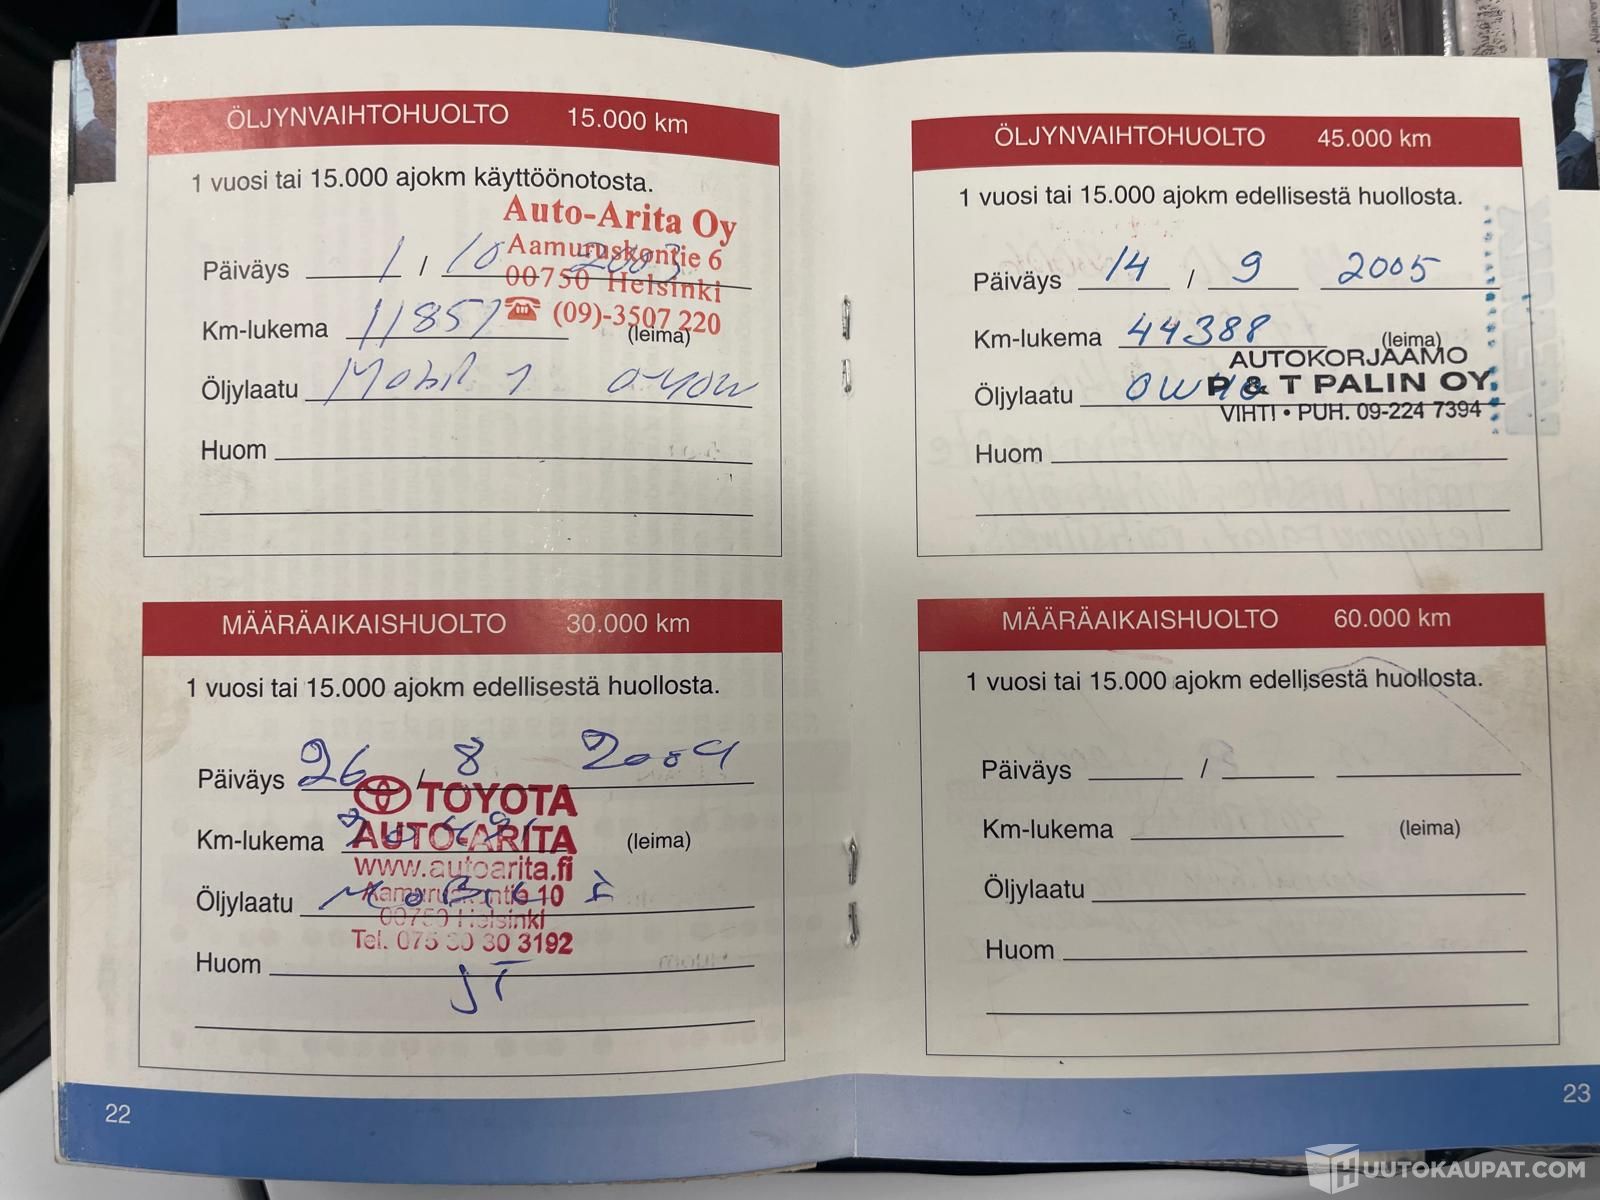 ÖLJYNVAIHTOHUOLTO 15.000 km
1 vuosi tai 15.000 ajokm käyttöönotosta.
Auto-Arita Oy
Aamuruskontie 6
00750 Helsinki
☎ (09)-3507 220
Päiväys 1 / 10 2003
Km-lukema 11857 (leima)
Öljylaatu Mobil 1 0-40W
Huom
MÄÄRÄAIKAISHUOLTO 30.000 km
1 vuosi tai 15.000 ajokm edellisestä huollosta.
Päiväys 26 / 8 2004
TOYOTA
AUTO-ARITA
www.autoarita.fi
Aamuruskontie 10
00750 Helsinki
Tel. 075 30 30 3192
Km-lukema (leima)
Öljylaatu MOBIL 1
Huom JT
22
ÖLJYNVAIHTOHUOLTO 45.000 km
1 vuosi tai 15.000 ajokm edellisestä huollosta.
Päiväys 14 / 9 2005
Km-lukema 44388 (leima)
AUTOKORJAAMO
P & T PALIN OY
VIHTI • PUH. 09-224 7394
Öljylaatu 0W40
Huom
MÄÄRÄAIKAISHUOLTO 60.000 km
1 vuosi tai 15.000 ajokm edellisestä huollosta.
Päiväys /
Km-lukema (leima)
Öljylaatu
Huom
23
HUUTOKAUPAT.COM